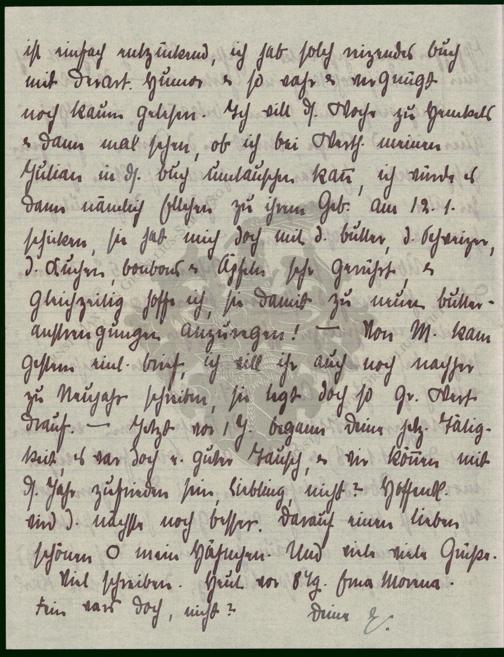 ist einfach entzückend, ich hab solch reizendes Buch
mit derart. Humor & so wahr & vergnügt
noch kaum gelesen. Ich will ds. Woche zu Henkels
& dann mal sehen, ob ich bei Werth. meinen
Julian in ds. Buch umtauschen kann, ich würde es
dann nämlich Ellchen zu ihrem Geb. am 12. 1.
schicken, sie hat mich doch mit d. Butter, d. Schweizer,
d. Kuchen, bonbons & Äpfeln sehr gerührt &
gleichzeitig hoffe ich, sie damit zu neuen Butter-
anstrengungen anzuregen! — Von M. kam
gestern eine. brief, ich will ihr auch noch nachher
zu Neujahr schreiben, sie legt doch so gr. Wert
drauf. — Jetzt vor 1 J. begann Deine jetz. Tätig-
keit, es war doch e. guter Tausch, & wir können mit
ds. Jahr zufrieden sein, Liebling, nicht? Hoffentl.
wird d. nächste noch besser. Darauf einen lieben
schönen O mein Häschen. Und viele viele Grüsse.
Viel schreiben. Heut vor 8 Tg.
Fein wars doch, nicht? Deine